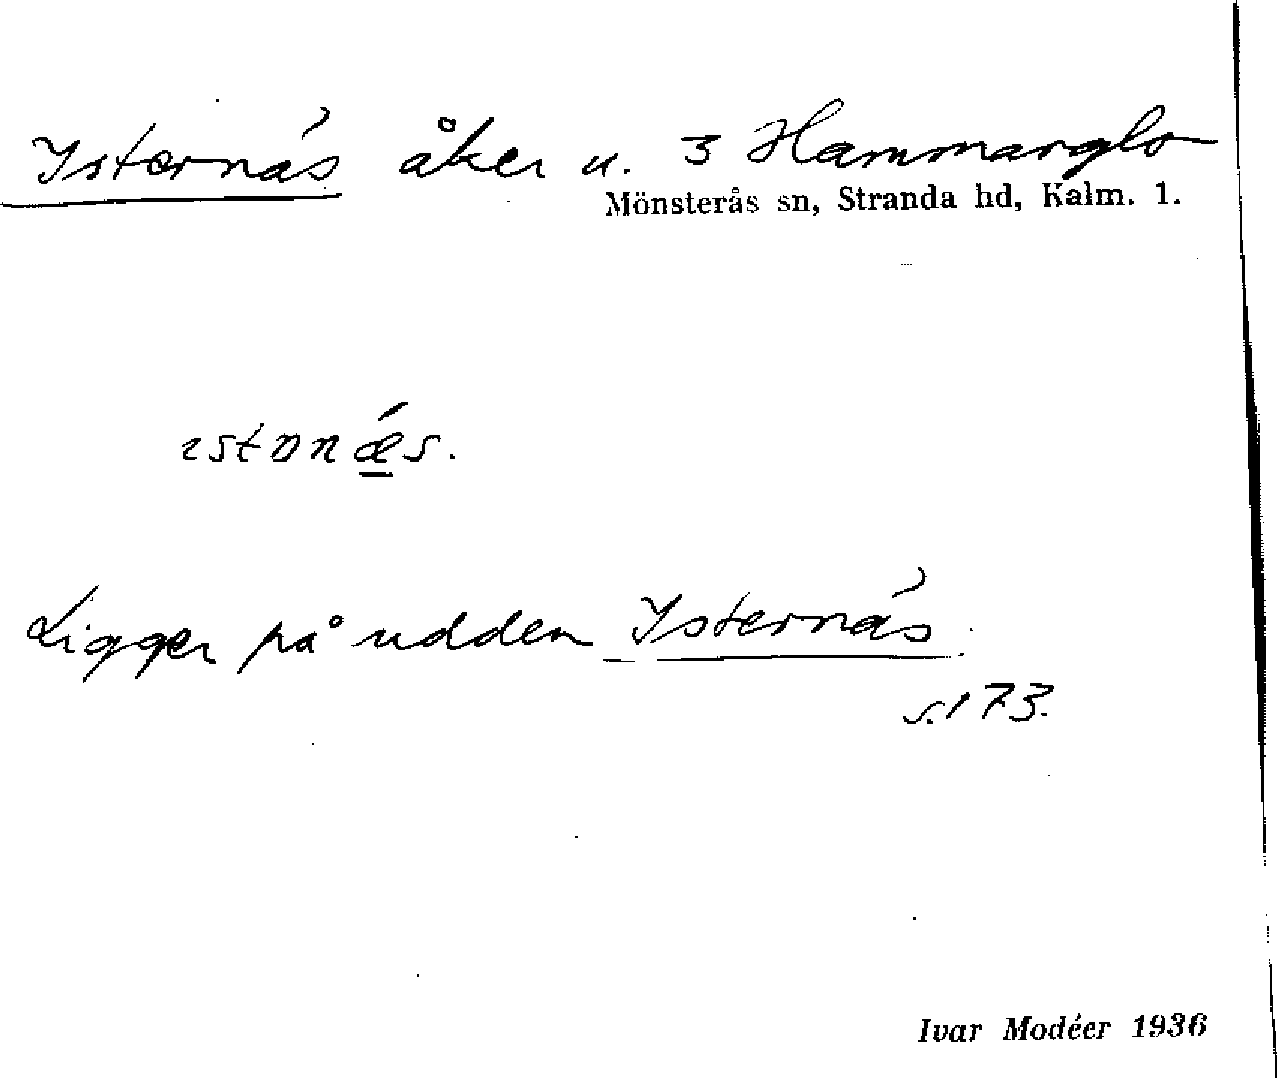 Isternäs åker u. 3 Hammarglo
Mönsterås sn, Stranda hd, Kalm. l.
Ligger på udden Isternäs.
s. 173.
Ivar Modéer 1936